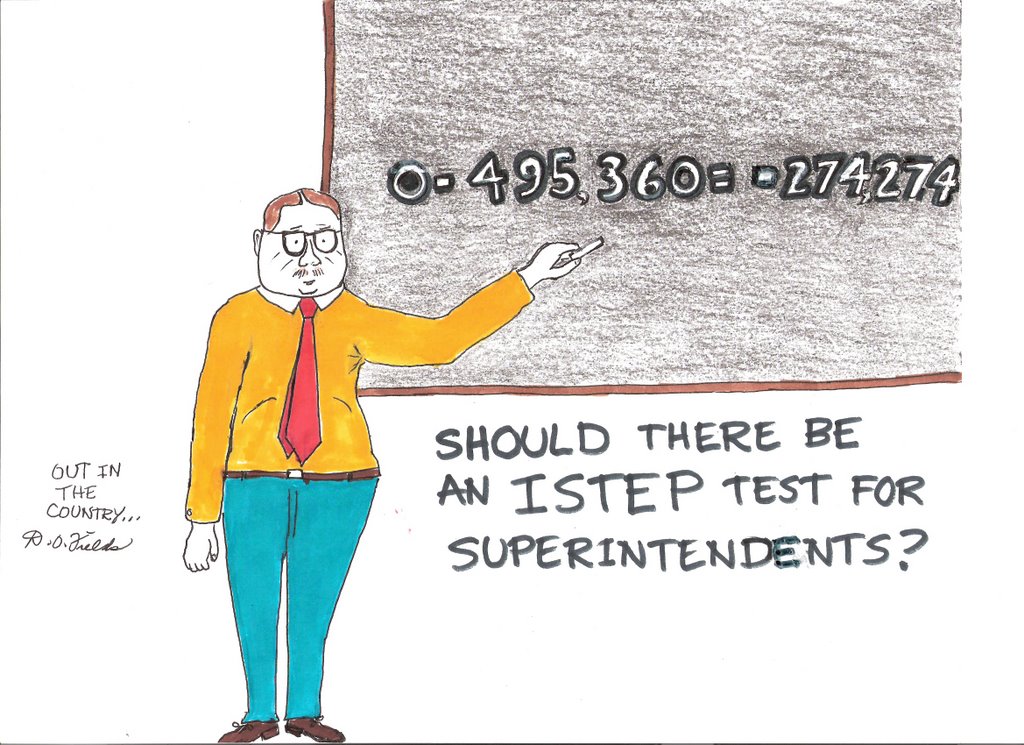 0-495,360=-274,274
SHOULD THERE BE
AN ISTEP TEST FOR
SUPERINTENDENTS?
OUT IN
THE
COUNTRY...
D.O. Fields